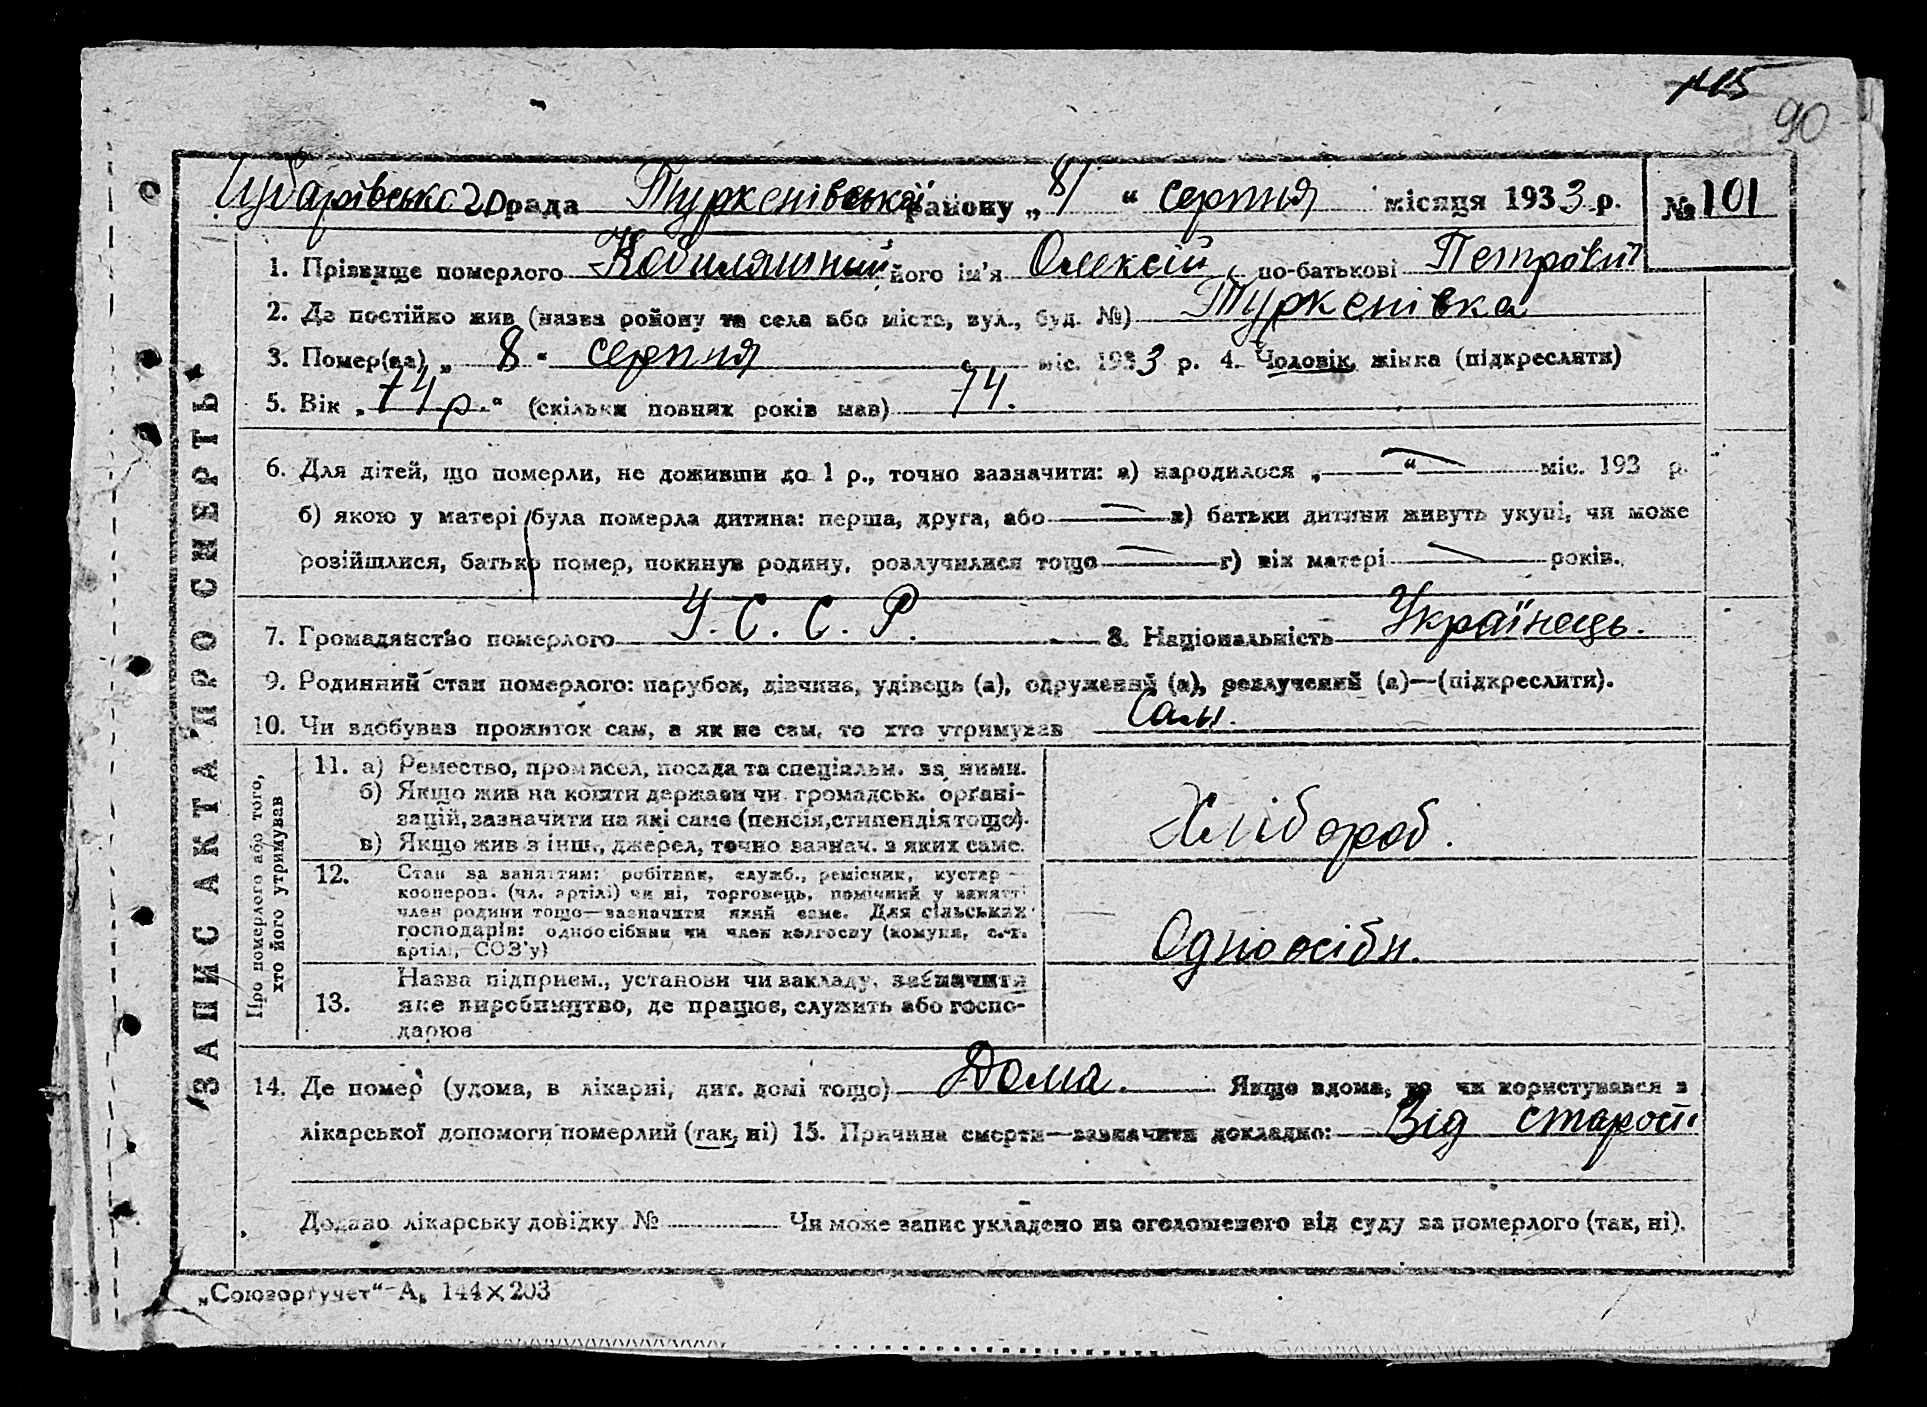 115
90
Цубарівського рада Туркенівської району „8/“ серпня місяця 1933 р. № 101
ЗАПИС АКТА ПРО СМЕРТЬ
1. Прізвище померлого його ім'я Олексій, по-батькові Петрович
2. Де постійно жив (назва району та села або міста, вул., буд. №) Туркенівка
3. Помер(ла) „8“ серпня міс. 1933 р. 4. Чоловік, жінка (підкреслити)
5. Вік „74 р.“ (скільки повних років мав) 74.
6. Для дітей, що померли, не доживши до 1 р., точно зазначити: а) народилося „ “ міс. 193 р.
б) якою у матері була померла дитина: перша, друга, або в) батьки дитини живуть укупі, чи може
розійшлися, батько помер, покинув родину, розлучилися тощо г) вік матері років.
7. Громадянство померлого У. С. С. Р. 8. Національність Українець.
9. Родинний стан померлого: парубок, дівчина, удівець (а), одружений (а), розлучений (а)—(підкреслити).
10. Чи здобував прожиток сам, а як не сам, то хто утримував Сам.
Про померлого або того, хто його утримував
11. а) Ремество, промисел, посада та спеціяльн. за ними.
б) Якщо жив на кошти держави чи громадськ. органі-
зацій, зазначити на які саме (пенсія, стипендія тощо).
в) Якщо жив з інш., джерел, точно зазнач. з яких саме.
Хлібороб.
12. Стан за заняттям: робітник, служб., ремісник, кустар—
кооперов. (чл. артілі) чи ні, торговець, помічний у занятті
член родини тощо—зазначити який саме. Для сільських
господарів: одноосібник чи член колгоспу (комуни, с.-г.
артілі, СОЗ'у)
Одноосібн.
13. Назва підприєм., установи чи закладу, зазначити
яке виробництво, де працює, служить або госпо-
дарює
14. Де помер (удома, в лікарні, дит. домі тощо) Дома. Якщо вдома, то чи користувався з
лікарської допомоги померлий (так, ні) 15. Причина смерти—зазначити докладно: Від старості
Додано лікарську довідку № Чи може запис укладено на оголошеного від суду за померлого (так, ні).
„Союзоргучет“ А, 144×203